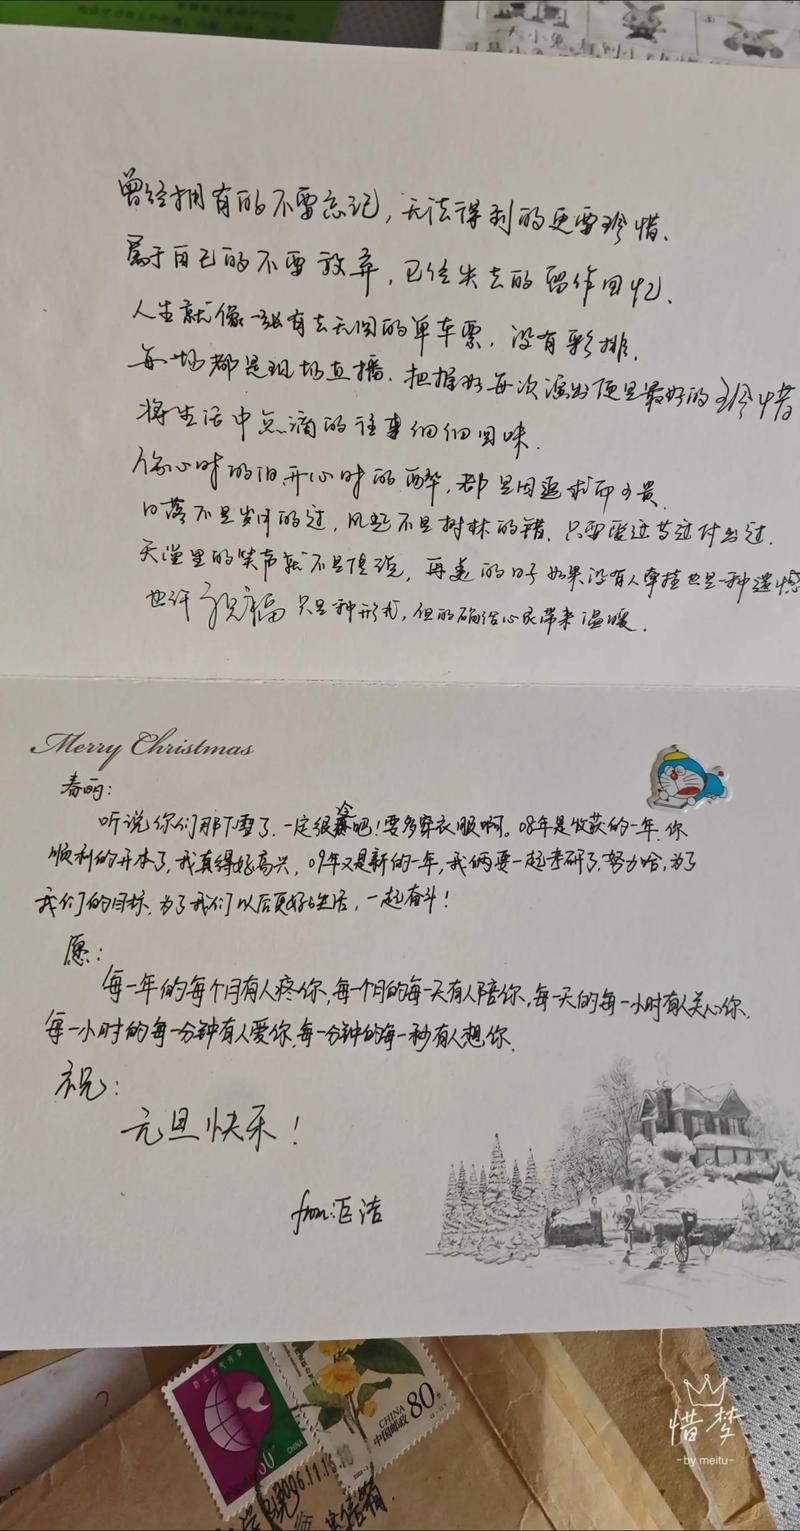 曾经拥有的不要忘记,无法得到的更要珍惜.
属于自己的不要放弃,已经失去的留作回忆.
人生就像一张有去无回的单车票,没有彩排.
每一场都是现场直播.把握好每次演出便是最好的珍惜
将生活中点滴的往事细细回味.
伤心时的泪,开心时的醉,都是因追求而可贵.
日落不是岁月的过,风起不是树林的错.只要爱过等过付出过.
天堂里的笑声就不是传说,再美的日子如果没有人牵挂也是一种遗憾
也许祝福只是种形式,但的确给心灵带来温暖.
Merry Christmas
春丽:
听说你们那下雪了.一定很冷吧!要多穿衣服啊。08年是收获的一年.你
顺利的升本了,我真得好高兴,09年又是新的一年,我俩要一起考研了,努力哈,为了
我们的目标.为了我们以后更好的生活,一起奋斗!
愿:
每一年的每个月有人疼你,每一个月的每一天有人陪你,每一天的每一小时有人关心你.
每一小时的每一分钟有人爱你,每一分钟的每一秒有人想你.
祝:
元旦快乐!
from:洁
CHINA
CHINA
中国邮政
80
惜梦
-by meitu-